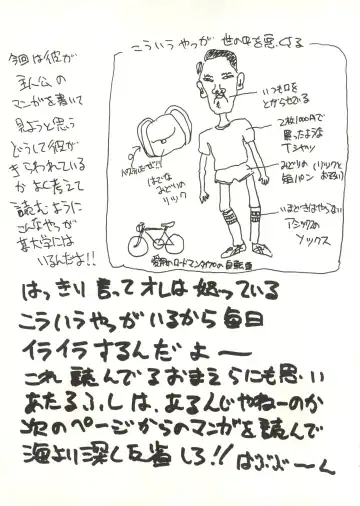 こういうやつが世の中を悪くする
今回は彼が
主人公の
マンガを書いて
見ようと思う
どうして彼が
きらわれている
かよく考えて
読むように
こんなやつが
某大学には
いるんだよ!!
いつも口を
とがらせている
2枚1000円で
買ったような
Tシャツ
みどりの(リックと
短パン おそろい)
いまどきはやらない
アシックスの
ソックス
はでな
みどりの
リック
愛用のロードマンタイプの自転車
はっきり言ってオレは怒っている
こういうやつがいるから毎日
イライラするんだよー
これ読んでるおまえらにも思い
あたるふしは、あるんじゃねーのか
次のページからのマンガを読んで
海より深く反省しろ!! ばぶぶーん